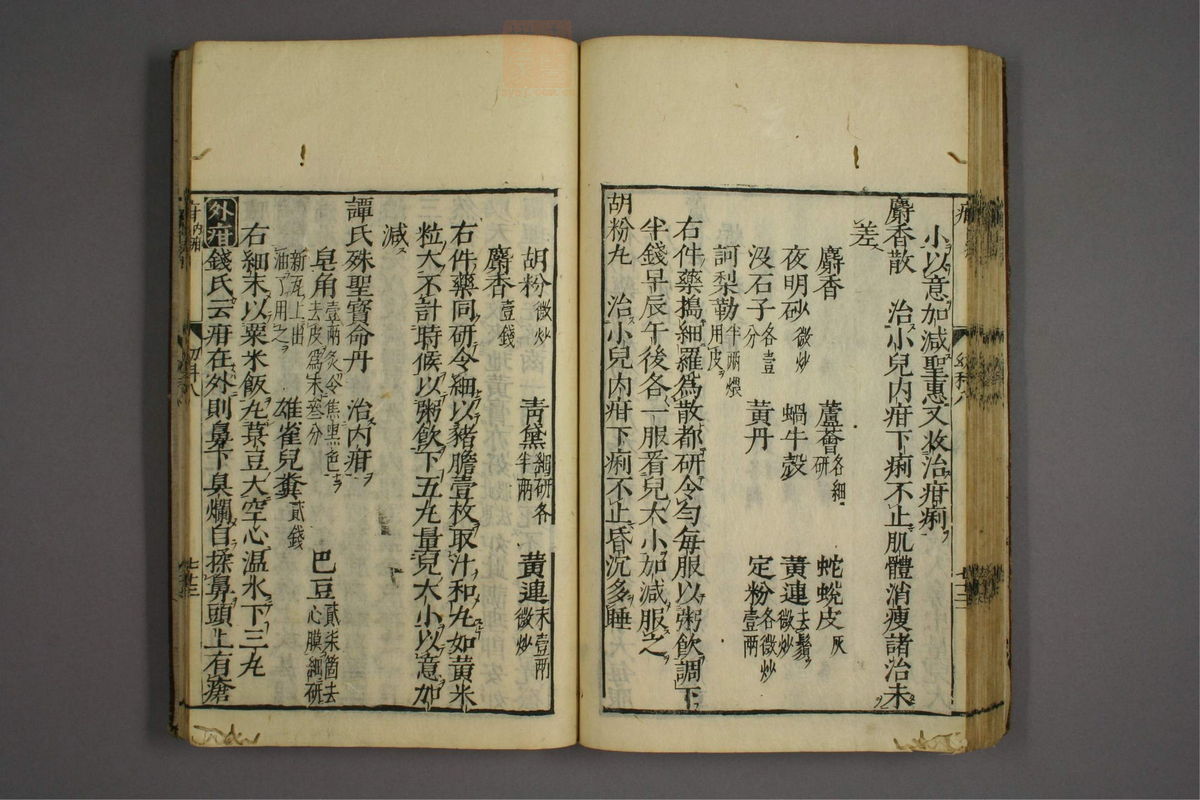 小以意加減聖惠又收治疳痢
麝香散　治小兒內疳下痢不止肌體消瘦諸治未
差
麝香　蘆薈各細研　蛇蛻皮灰
夜明砂微炒　蝸牛殼　黃連去鬚微炒
沒石子各壹分　黃丹　定粉各微炒壹兩
訶梨勒半兩煨用皮
右件藥搗細羅為散都研令勻每服以粥飲調下
半錢早辰午後各一服看兒大小加減服之
胡粉丸　治小兒內疳下痢不止昏沉多睡
胡粉微炒　青黛細研各半兩　黃連末壹兩微炒
麝香壹錢
右件藥同研令細以豬膽壹枚取汁和丸如黃米
粒大不計時候以粥飲下五丸量兒大小以意加
減
譚氏殊聖寶命丹　治內疳
皂角壹兩炙令焦黑色去皮為末叄分　巴豆貳柒箇去心膜細研
新瓦上出油了用之　雄雀兒糞貳錢
右細末以粟米飯丸菉豆大空心溫水下三丸
外疳錢氏云疳在外則鼻下臭爛自揉鼻頭上有瘡